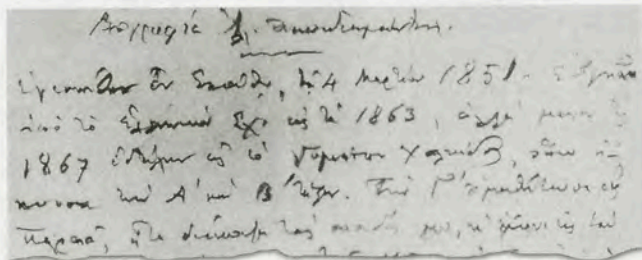 Ἀ. Παπαδιαμάντη.
Ἐγεννήθην ἐν Σκιάθῳ, τῇ 4 Μαρτίου 1851. Ἐβγῆκα
ἀπὸ τὸ Ἑλληνικὸν Σχολ. εἰς τὰ 1863, ἀλλὰ μόνον τῷ
1867 ἐστάλην εἰς τὸ Γυμνάσιον Χαλκίδος, ὅπου ἤ-
κουσα τὴν Α' καὶ Β' τάξιν. Τὴν Γ' ἐμαθήτευσα εἰς
Πειραιᾶ, εἶτα διέκοψα τὰς σπουδάς μου, κ' ἔμεινα εἰς τὴν